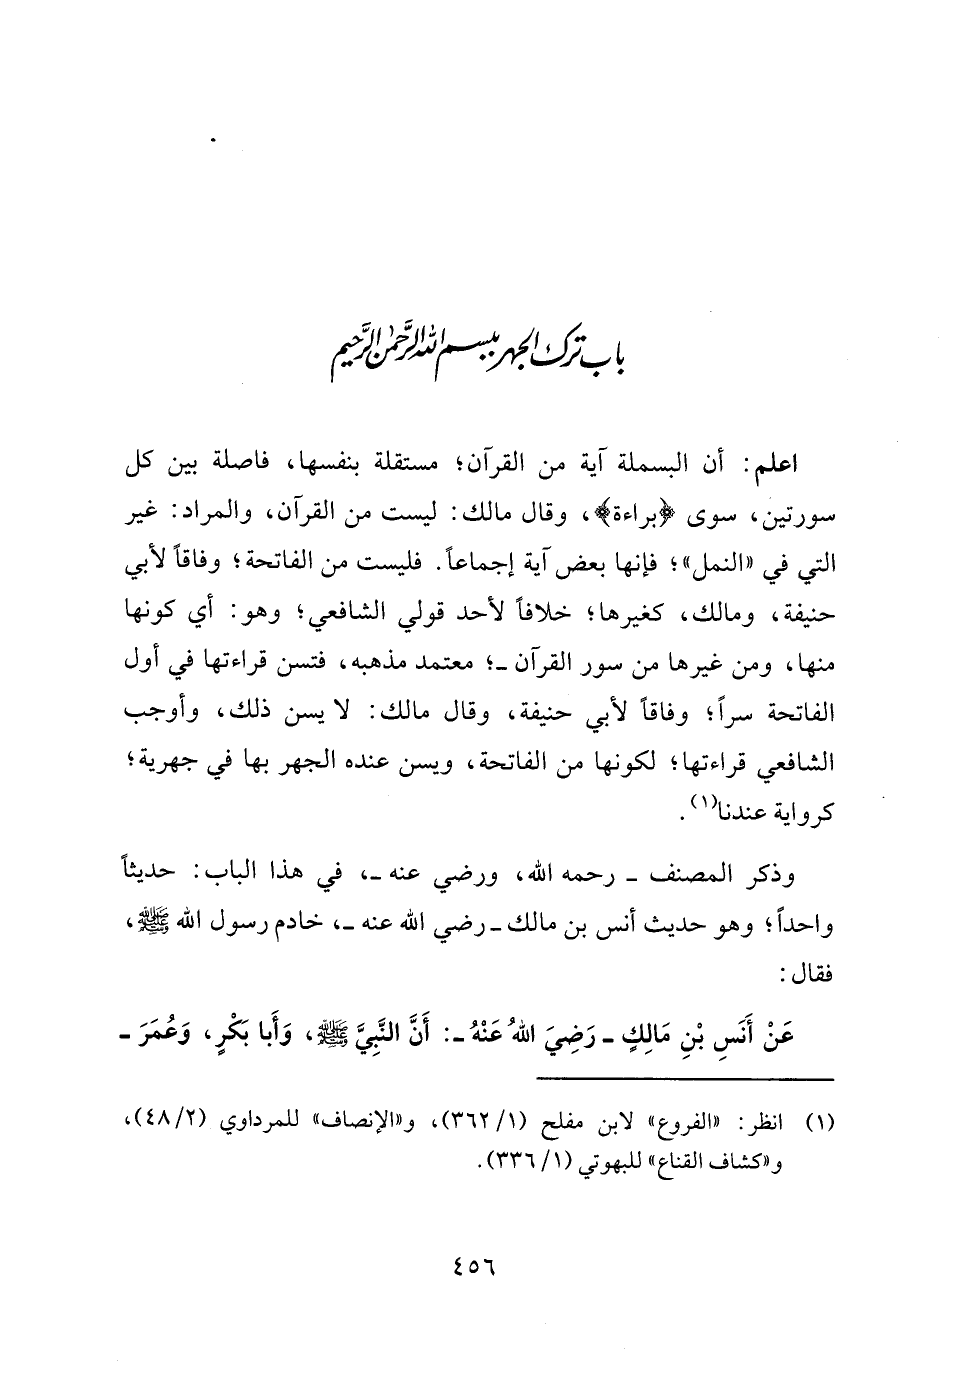 باب ترك الجهر ببسم الله الرحمن الرحيم
اعلم: أن البسملة آية من القرآن؛ مستقلة بنفسها، فاصلة بين كل
سورتين، سوى ﴿براءة﴾، وقال مالك: ليست من القرآن، والمراد: غير
التي في «النمل»؛ فإنها بعض آية إجماعاً. فليست من الفاتحة؛ وفاقاً لأبي
حنيفة، ومالك، كغيرها؛ خلافاً لأحد قولي الشافعي؛ وهو: أي كونها
منها، ومن غيرها من سور القرآن ـ؛ معتمد مذهبه، فتسن قراءتها في أول
الفاتحة سراً؛ وفاقاً لأبي حنيفة، وقال مالك: لا يسن ذلك، وأوجب
الشافعي قراءتها؛ لكونها من الفاتحة، ويسن عنده الجهر بها في جهرية؛
كرواية عندنا(١).
وذكر المصنف ـ رحمه الله، ورضي عنه ـ، في هذا الباب: حديثاً
واحداً؛ وهو حديث أنس بن مالك ـ رضي الله عنه ـ، خادم رسول الله ﷺ،
فقال:
عَنْ أَنَسِ بْنِ مَالِكٍ ـ رَضِيَ اللهُ عَنْهُ ـ: أَنَّ النَّبِيَّ ﷺ، وَأَبا بَكْرٍ، وَعُمَرَ ـ
(١) انظر: «الفروع» لابن مفلح (١/ ٣٦٢)، و«الإنصاف» للمرداوي (٢/ ٤٨)،
و«كشاف القناع» للبهوتي (١/ ٣٣٦).
٤٥٦